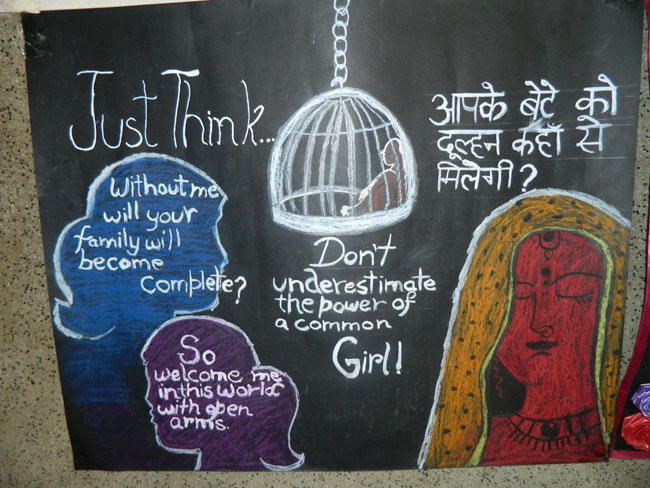 Just Think...
आपके बेटे को
दूल्हन कहाँ से
मिलेगी?
Without me
will your
family will
become
complete?
Don't
underestimate
the power of
a common
Girl!
So
welcome me
in this world
with open
arms.